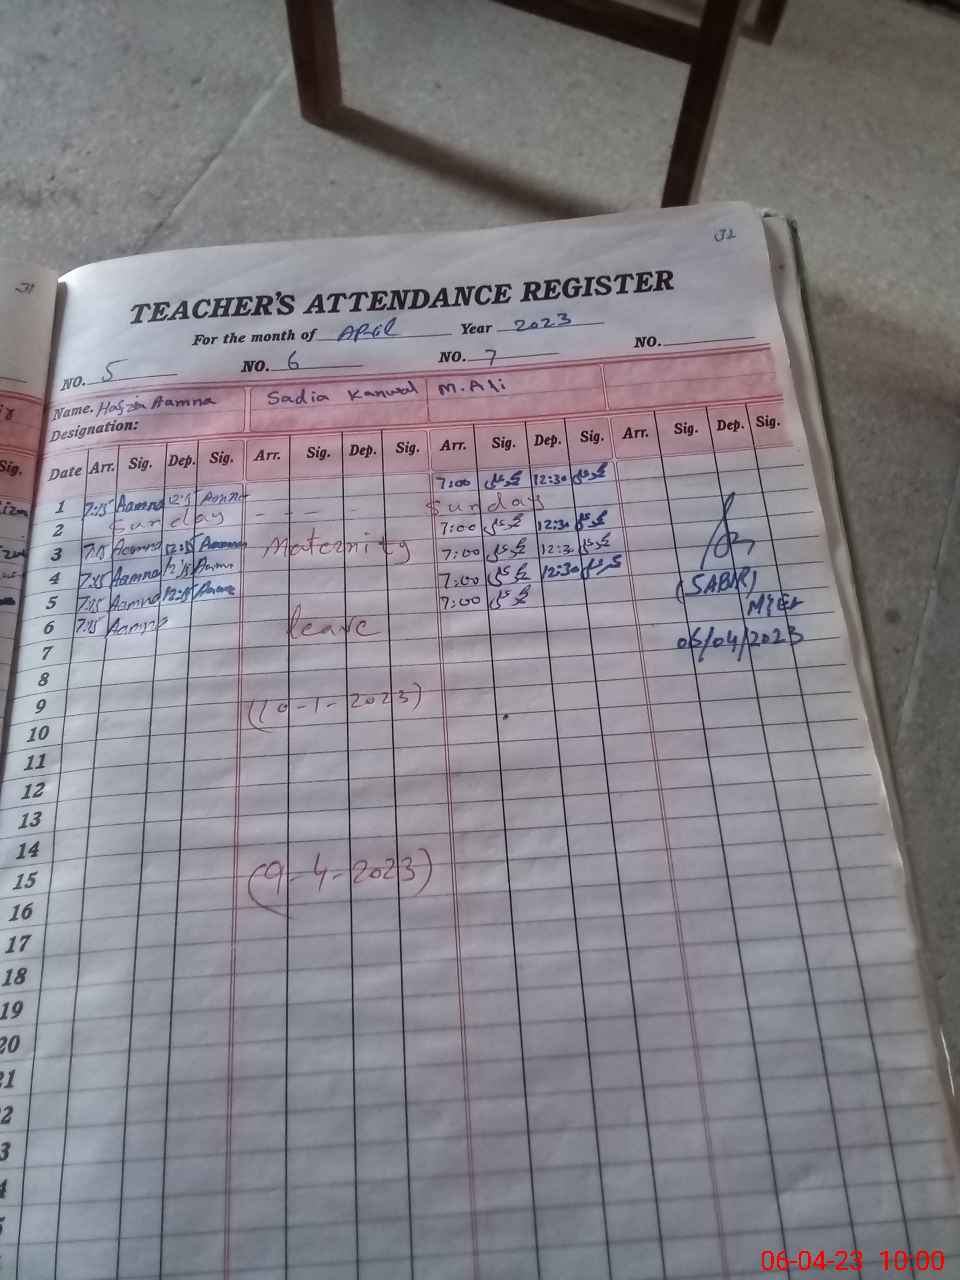 32
31
TEACHER'S ATTENDANCE REGISTER
For the month of April Year 2023
NO. 5 NO. 6 NO. 7 NO.
Name. Hafzia Aamna Sadia Kanwal M. Ali
Designation:
Date Arr. Sig. Dep. Sig. Arr. Sig. Dep. Sig. Arr. Sig. Dep. Sig. Arr. Sig. Dep. Sig.
Sig.
1 7:15 Aamna 12:15 Aamna 7:00 12:30
2 Sunday - - - - Sunday
3 7:15 Aamna 12:15 Aamna Maternity 7:00 12:30
4 7:15 Aamna 12:15 Aamna 7:00 12:30
5 7:15 Aamna 12:15 Aamna 7:00 12:30
6 7:15 Aamna leave 7:00
(SABIR)
06/04/2023
7
8
9 (10-1-2023)
10
11
12
13
14
15 (9-4-2023)
16
17
18
19
20
21
2
3
4
5
06-04-23 10:00